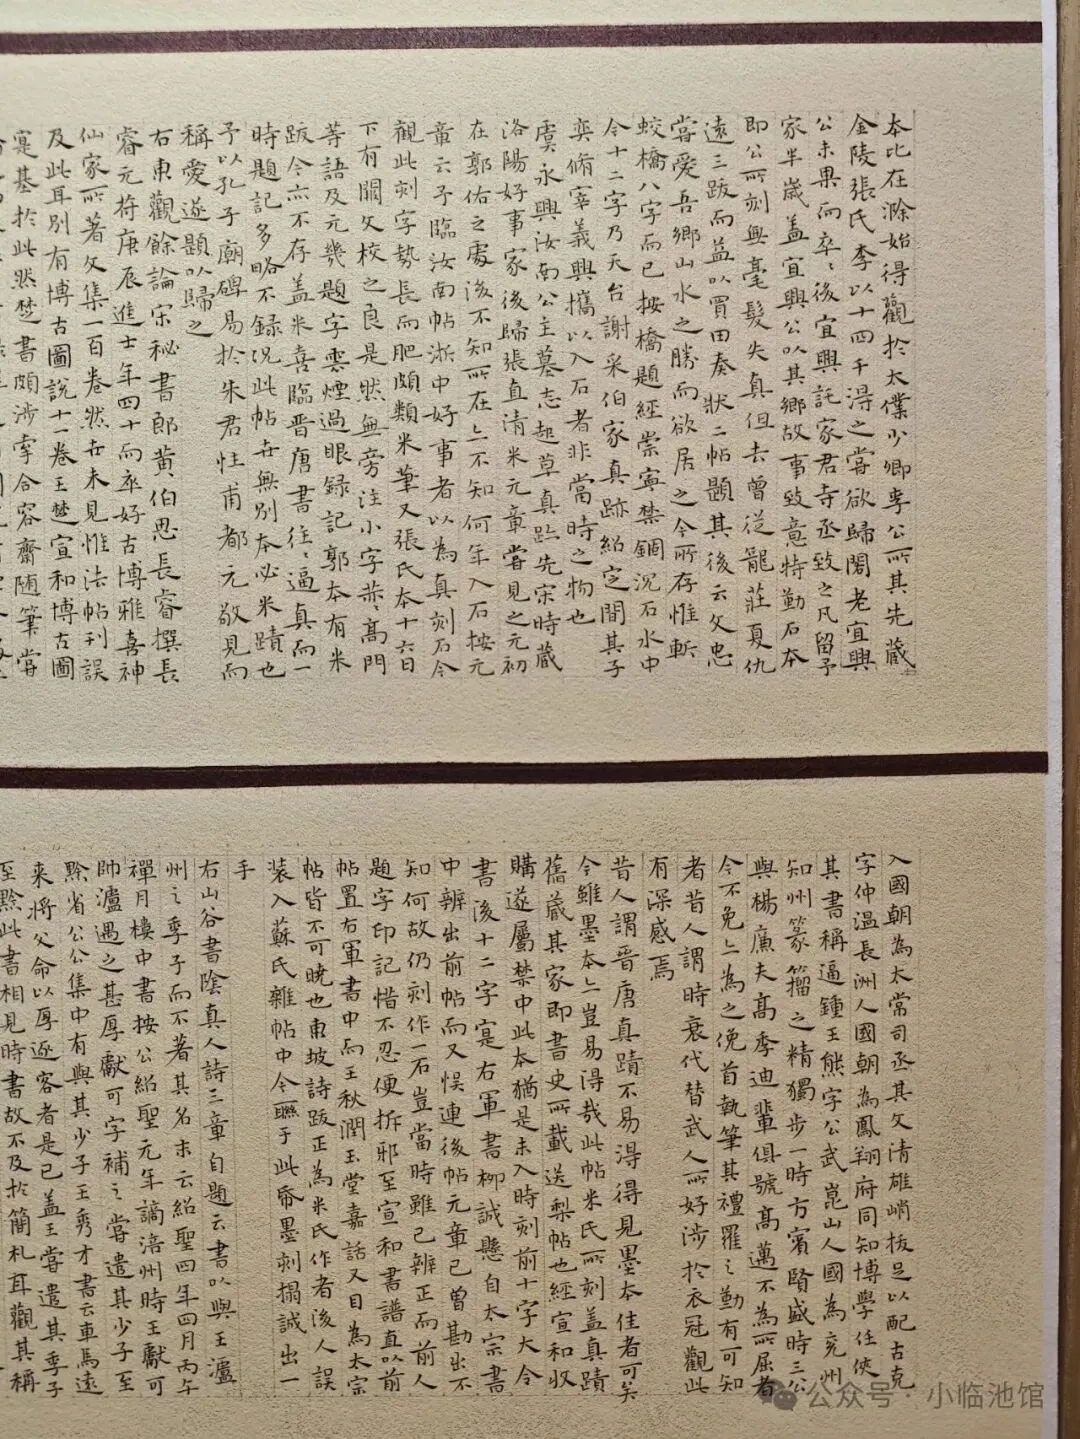 本比在滁始得觀於太僕少卿李公所其先藏
金陵張氏李以十四千得之嘗欲歸閣老宜興
公未果而卒〻後宜興託家君寺丞致之凡留予
家半歲蓋宜興公以其鄉故事致意特勤石本
即公所刻無毫髮失真但去曾從龍莊夏仇
遠三跋而益以買田奏狀二帖題其後云文忠
嘗愛吾鄉山水之勝而欲居之今所存惟斬
蛟橋八字而已按橋題經崇寧禁錮沉石水中
今十二字乃天台謝采伯家真跡紹定間其子
奕脩宰義興攜以入石者非當時之物也
虞永興汝南公主墓志起草真跡先宋時藏
洛陽好事家後歸張直清米元章嘗見之元初
在郭佑之處後不知所在亦不知何年入石按元
章云予臨汝南帖浙中好事者以為真刻石今
觀此刻字勢長而肥頗類米筆又張氏本十六日
下有闕文校之良是然無旁注小字恭〻高門
等語及元幾題字雲煙過眼録記郭本有米
跋今亦不存蓋米喜臨晋唐書往〻逼真而一
時題記多略不録况此帖世無別本必米蹟也
予以孔子廟碑易於朱君性甫都元敬見而
稱愛遂題以歸之
右東觀餘論宋秘書郎黄伯思長睿撰長
睿元符庚辰進士年四十而卒好古博雅喜神
仙家所著文集一百卷然世未見惟法帖刊誤
及此耳別有博古圖說十一卷王楚宣和博古圖
寔基於此然楚書頗涉牽合容齋随筆嘗
入國朝為太常司丞其文清雄峭拔足以配古克
字仲溫長洲人國朝為鳳翔府同知博學任俠
其書稱逼鍾王熊字公武崑山人國為兖州
知州篆籀之精獨步一時方賓賢盛時三公
與楊廉夫高季迪輩俱號高邁不為所屈者
今不免亦為之俛首執筆其禮羅之勤有可知
者昔人謂時衰代替武人所好涉於衣冠觀此
有深感焉
昔人謂晋唐真蹟不易得得見墨本佳者可矣
今雖墨本亦豈易得哉此帖米氏所刻蓋真蹟
舊藏其家即書史所載送梨帖也經宣和收
購遂屬禁中此本猶是未入時刻前十字大令
書後十二字寔右軍書栁誠懸自太宗書
中辨出前帖而又悮連後帖元章已曾勘出不
知何故仍刻作一石豈當時雖已辨正而前人
題字印記惜不忍便拆邪至宣和書譜直以前
帖置右軍書中而王秋澗玉堂嘉話又目為太宗
帖皆不可曉也東坡詩跋正為米氏作者後人誤
装入蘇氏雜帖中今聯于此帋墨刺搨誠出一
手
右山谷書陰真人詩三章自題云書以與王瀘
州之季子而不著其名末云紹聖四年四月丙午
禪月樓中書按公紹聖元年謫涪州時王獻可
帥瀘遇之甚厚獻可字補之嘗遣其少子至
黔省公公集中有與其少子王秀才書云車馬遠
来將父命以厚逐客者是已蓋王嘗遣其季子
至黔此書相見時書故不及於簡札耳觀其稱
公众号·小临池馆